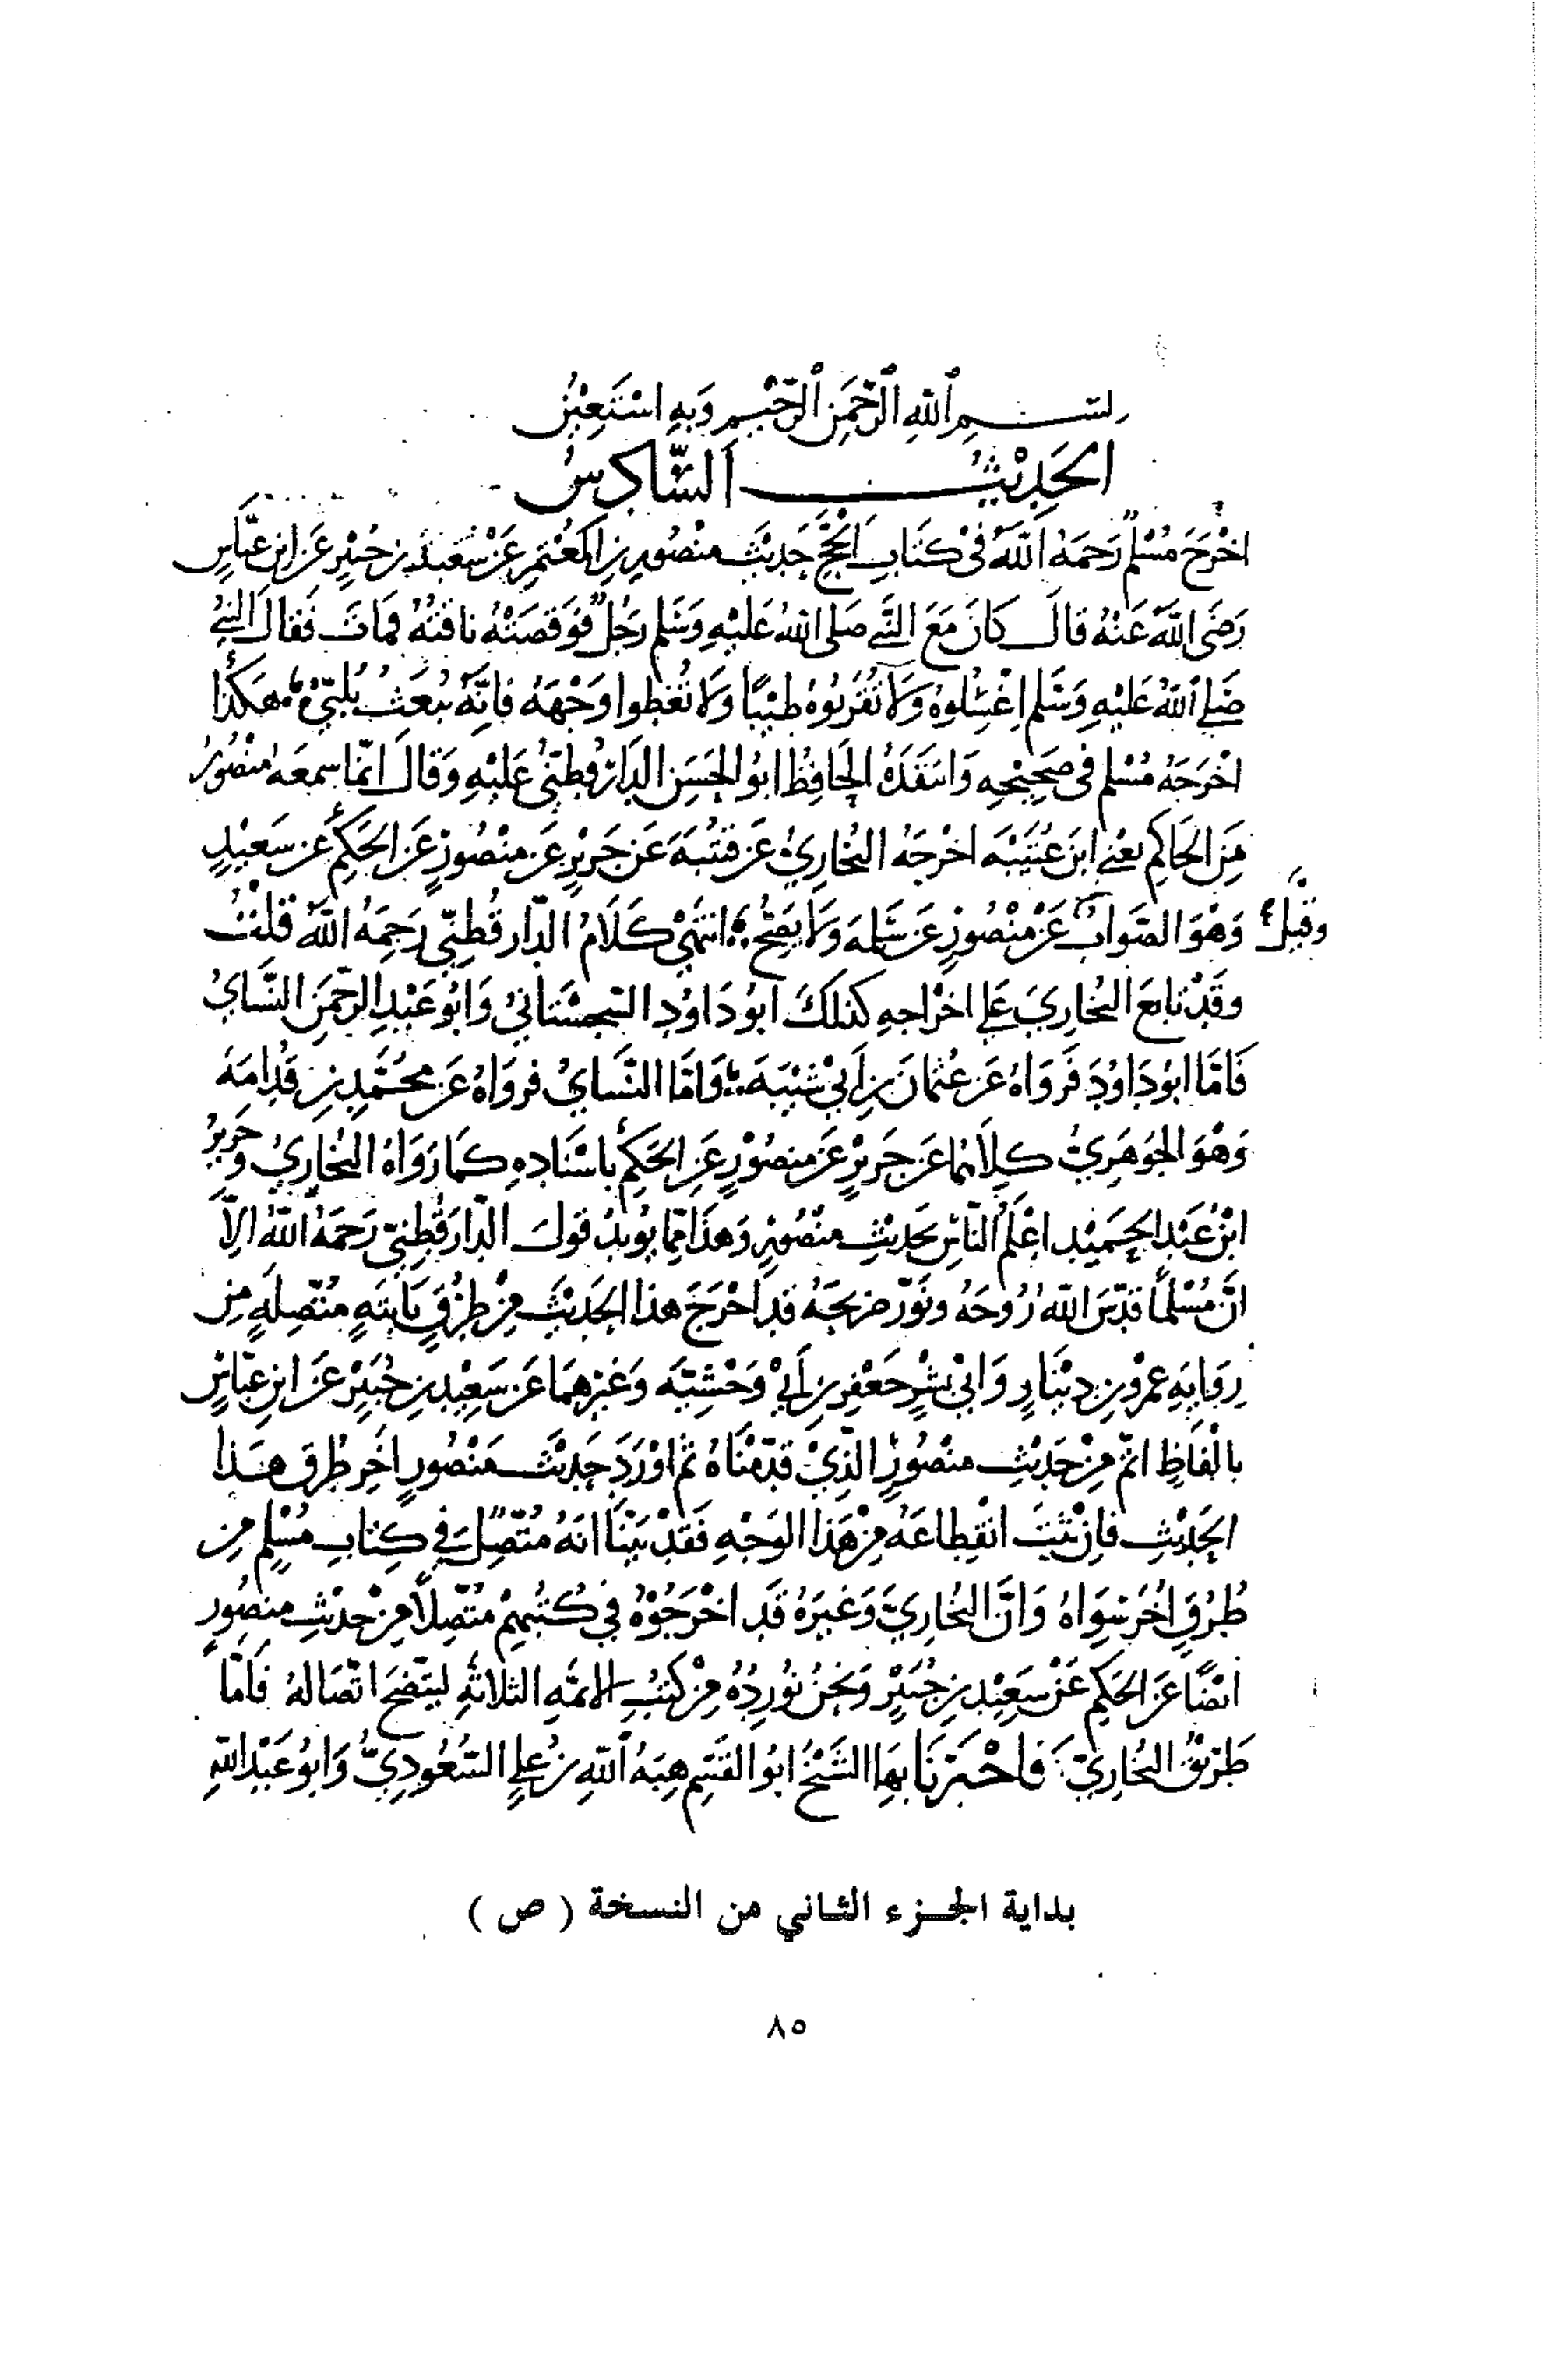 بسم الله الرحمن الرحيم وبه استعين
الحديث السادس
اخرج مسلم رحمه الله في كتاب الحج حديث منصور بن المعتمر عن سعيد بن جبير عن ابن عباس
رضي الله عنه قال كان مع النبي صلى الله عليه وسلم رجل فوقصته ناقته فمات فقال النبي
صلى الله عليه وسلم اغسلوه ولا تقربوه طيبا ولا تغطوا وجهه فانه يبعث يلبي هكذا
اخرجه مسلم في صحيحه وانتقده الحافظ ابو الحسن الدارقطني عليه وقال انما سمعه منصور
من الحاكم يعني ابن عتيبة اخرجه البخاري عن قتيبة عن جرير عن منصور عن الحكم عن سعيد
وهو الصواب عن منصور عن سلمه ولا يصح انتهى كلام الدارقطني رحمه الله قلت
وقيل
وقد تابع البخاري على اخراجه كذلك ابو داود السجستاني وابو عبد الرحمن النساي
فاما ابو داود فرواه عن عثمان بن ابي شيبة واما النساي فرواه عن محمد بن قدامة
وهو الجوهري كلاهما عن جرير عن منصور عن الحكم باسناده كما رواه البخاري وجرير
ابن عبد الحميد اعلم الناس بحديث منصور وهذا مما يويد قول الدارقطني رحمه الله الا
ان مسلما قدس الله روحه ونور ضريحه قد اخرج هذا الحديث من طرق ثابتة متصلة من
رواية عمرو بن دينار وابي بشر جعفر بن ابي وحشية وغيرهما عن سعيد بن جبير عن ابن عباس
بالفاظ اتم من حديث منصور الذي قدمناه ثم اورد حديث منصور اخر طرق هذا
الحديث فان ثبت انقطاعه من هذا الوجه فقد بينا انه متصل في كتاب مسلم من
طرق اخر سواه وان البخاري وغيره قد اخرجوه في كتبهم متصلا من حديث منصور
ايضا عن الحكم عن سعيد بن جبير ونحن نورده من كتب الائمه الثلاثة ليتضح اتصاله فاما
طريق البخاري فاخبرنا بها الشيخ ابو القسم هبة الله بن علي السعودي وابو عبد الله
بداية الجزء الثاني من النسخة ( ص )
٨٥